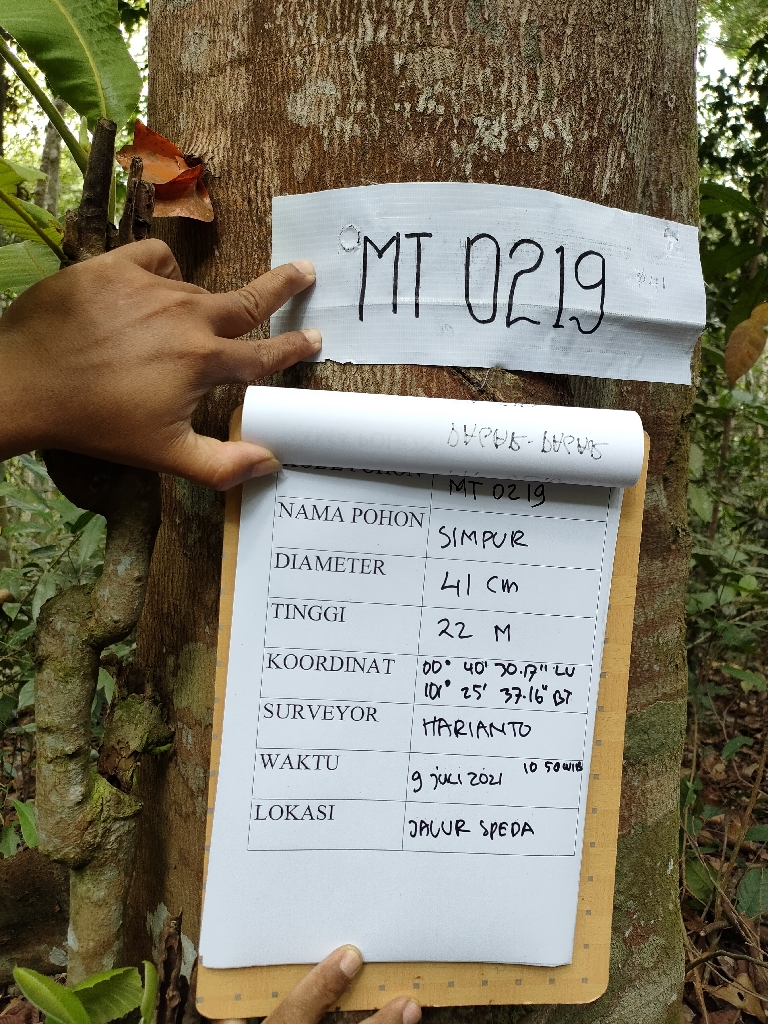 MT 0219
MT 0219
NAMA POHON SIMPUR
DIAMETER 41 cm
TINGGI 22 M
KOORDINAT 00° 40' 30.17" LU
101° 25' 37.16" BT
SURVEYOR HARIANTO
WAKTU 9 JULI 2021 10 50 WIB
LOKASI JALUR SPEDA